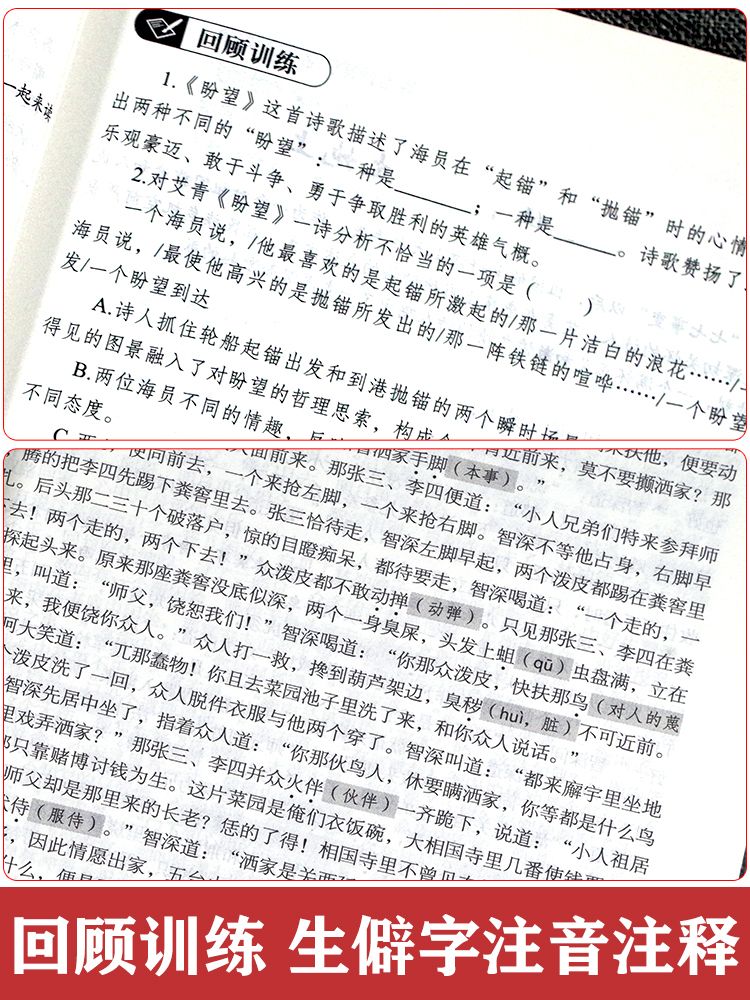 回顾训练
一起来读
1.《盼望》这首诗歌描述了海员在“起锚”和“抛锚”时的心情
出两种不同的“盼望”：一种是______；一种是______。诗歌赞扬了
乐观豪迈、敢于斗争、勇于争取胜利的英雄气概。
2.对艾青《盼望》一诗分析不恰当的一项是（ ）
一个海员说，/他最喜欢的是起锚所激起的/那一片洁白的浪花……/一
海员说，/最使他高兴的是抛锚所发出的/那一阵铁链的喧哗……/一个盼望
发/一个盼望到达
A.诗人抓住轮船起锚出发和到港抛锚的两个瞬时场
得见的图景融入了对盼望的哲理思索，构成
B.两位海员不同的情趣，
不同态度。
洒家手脚（本事）。”
便向前去，一个来抢左脚，一个来抢右脚。智深不等他占身，右脚早
腾的把李四先踢下粪窖里去。张三恰待走，智深左脚早起，两个泼皮都踢在粪窖里
扎。后头那二三十个破落户，惊的目瞪痴呆，都待要走，智深喝道：“一个走的，一
去！两个走的，两个下去！”众泼皮都不敢动掸（动弹）。只见那张三、李四在粪
探起头来。原来那座粪窖没底似深，两个一身臭屎，头发上蛆（qū）虫盘满，立在
里，叫道：“师父，饶恕我们！”智深喝道：“你那众泼皮，快扶那鸟（对人的蔑
来，我便饶你众人。”众人打一救，搀到葫芦架边，臭秽（huì，脏）不可近前。
呵大笑道：“兀那蠢物！你且去菜园池子里洗了来，和你众人说话。”
个泼皮洗了一回，众人脱件衣服与他两个穿了。智深叫道：“都来廨宇里坐地
智深先居中坐了，指着众人道：“你那伙鸟人，休要瞒洒家，你等都是什么鸟
里戏弄洒家？”那张三、李四并众火伴（伙伴）一齐跪下，说道：“小人祖居
只靠赌博讨钱为生。这片菜园是俺们衣饭碗，大相国寺里几番使钱
师父却是那里来的长老？恁的了得！相国寺里不曾见
伏侍（服侍）。”智深道：“洒家是关西
，因此情愿出家，五台
回顾训练 生僻字注音注释